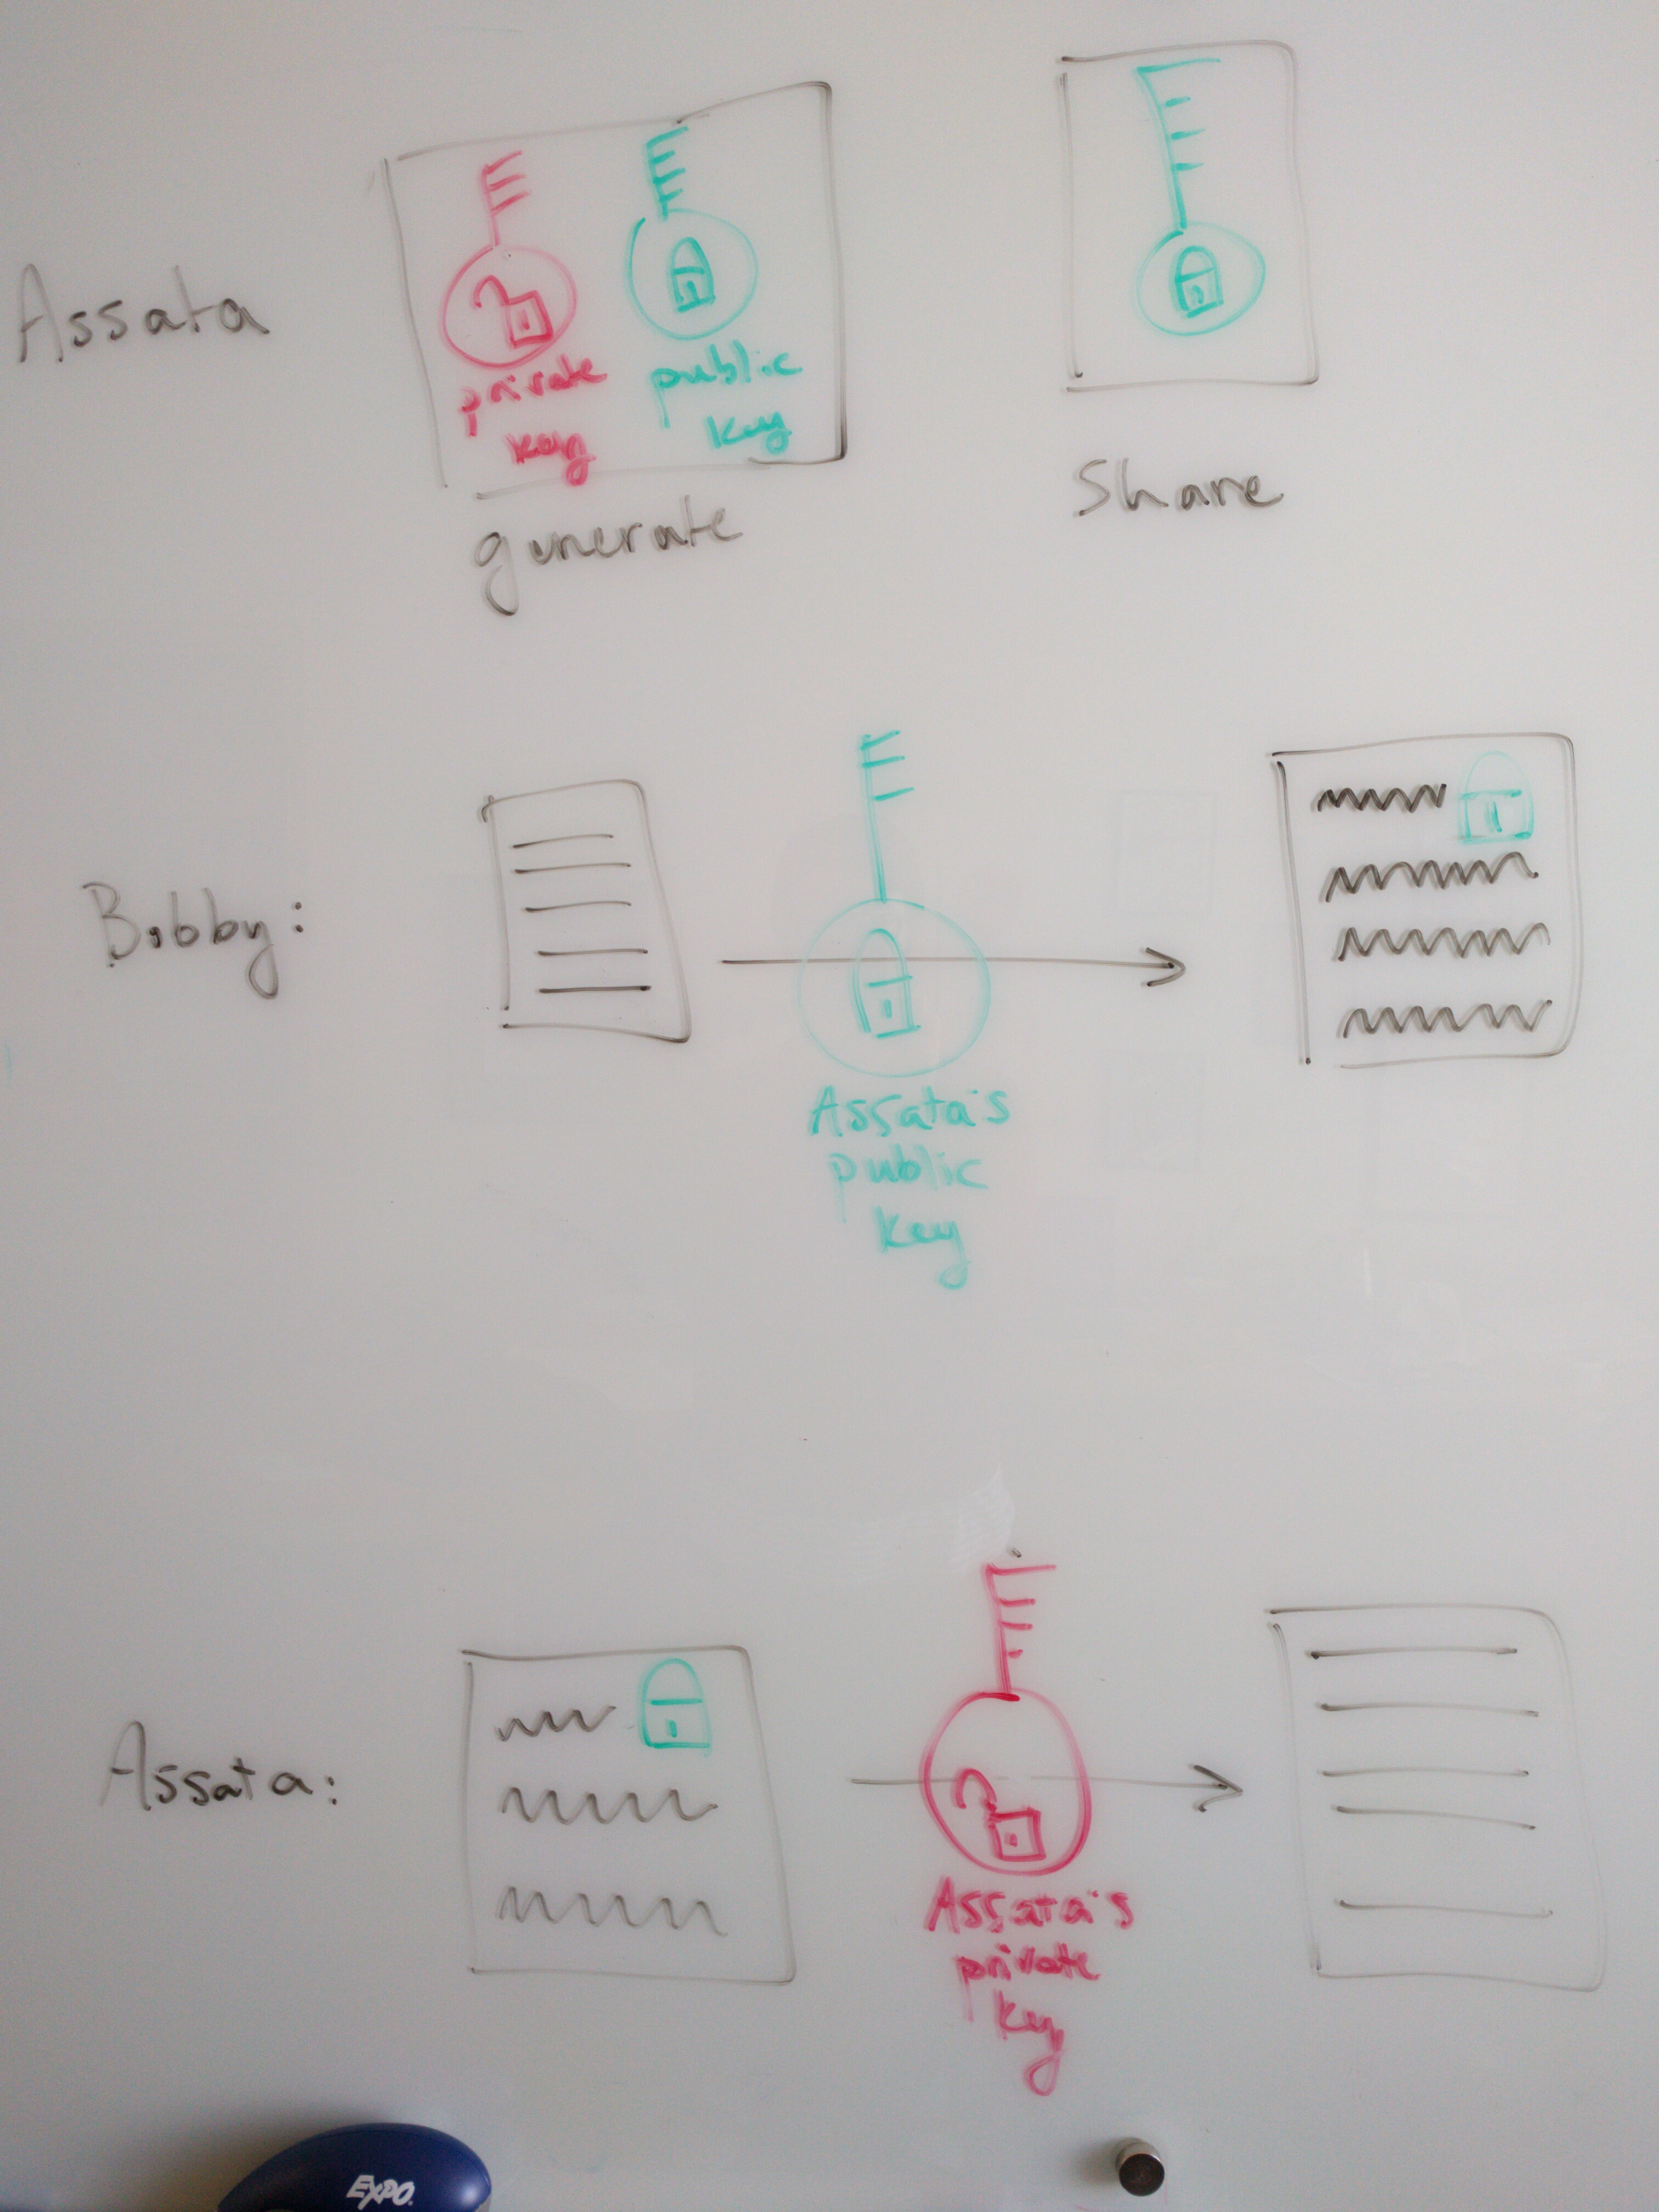 Assata
private
key
public
key
generate
Share
Bobby:
Assata's
public
key
Assata:
Assata's
private
key
EXPO